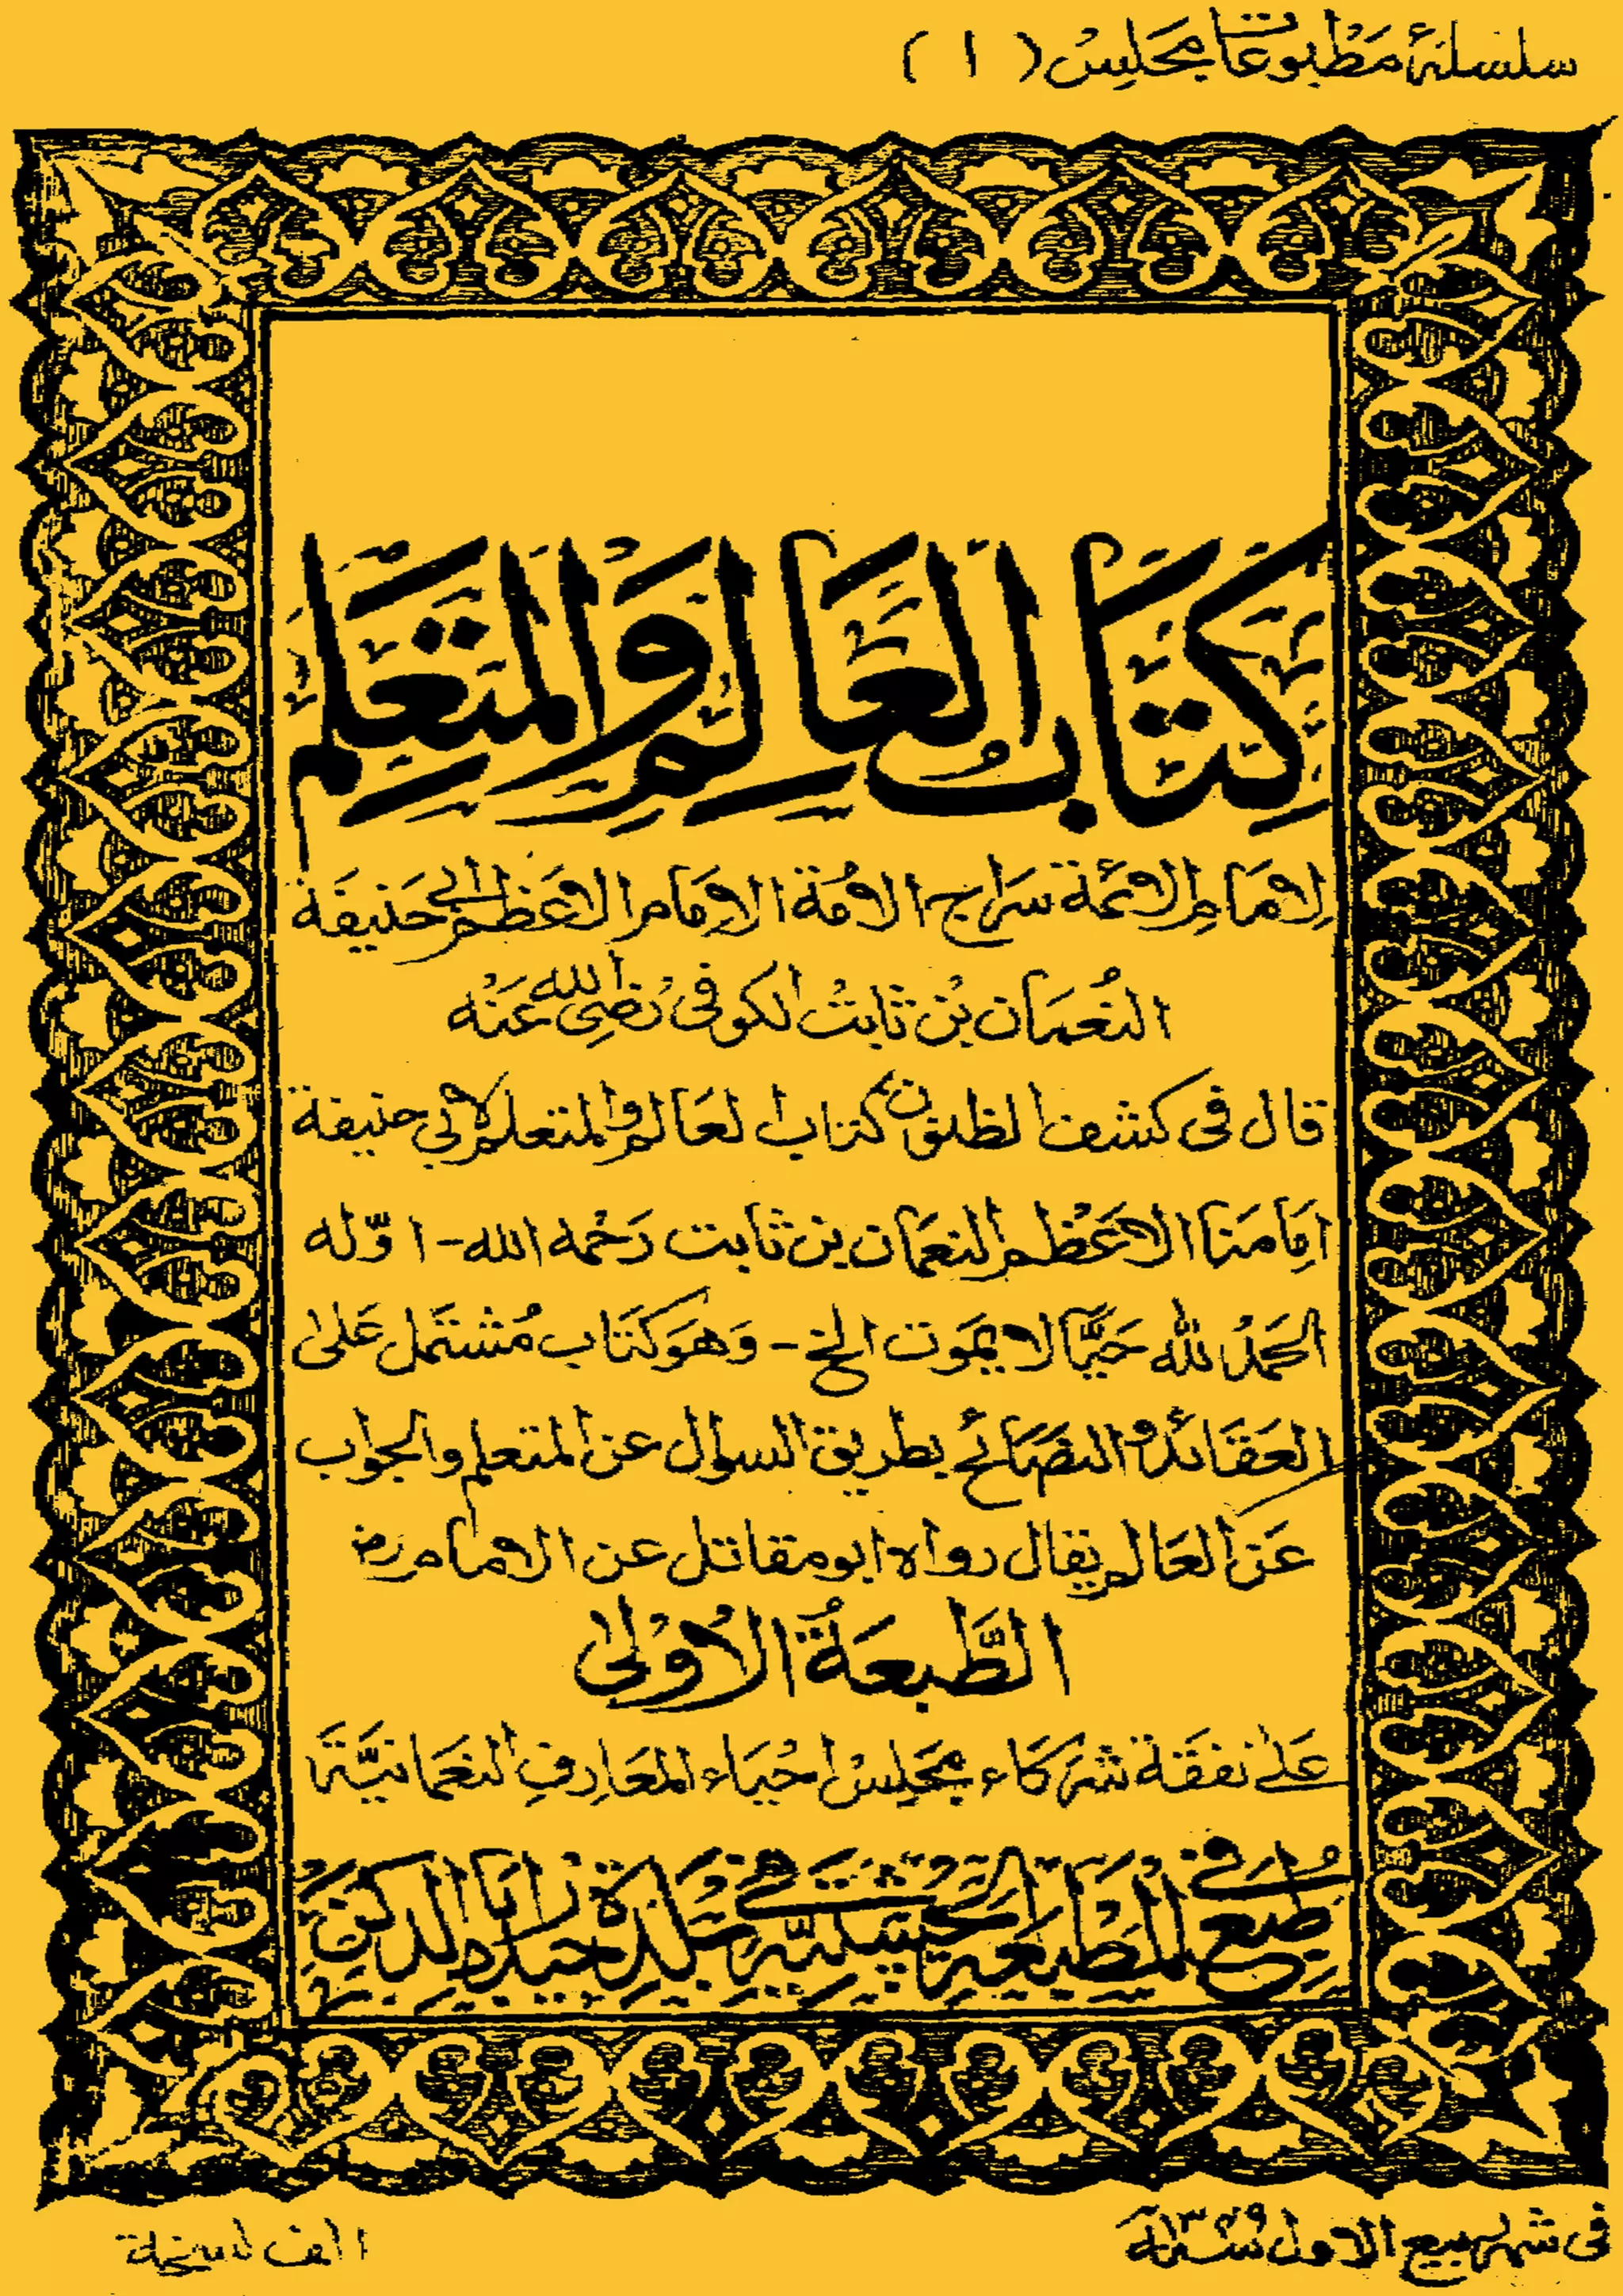 سلسلۀ مطبوعات مجلس (١)
كِتَابُ العَالِمِ وَالمُتَعَلِّمِ
لِامَامِ الائمَّة سِرَاج الامُّة الامَام الاعَظم ابی حَنیفَة
النُعمَان بْن ثابتْ الکوفی رَضِی الله عَنْه
قال فی کشف الظنون کتاب العَالم والمتعلم لابی حنیفة
اِمَامنَا الاعَظْم النعمَان بن ثابت رَحْمه الله - اوّله
الحَمدُ لله حَیًّا لا یمَوت الخ - وَهوَ کتَاب مُشتمَل عَلیٰ
العَقَائد و النصَائح بطریق السوال عن المتعلم والجواب
عَن العَالم یقال رواه ابو مقاتل عن الامام رض
الطَّبعَةُ الاُوْلیٰ
عَلیٰ نفقَة شرکَاء مجَلِسْ احْیَاء المعَارِفِ النعَمانیَّة
طُبِعَ فِی المَطْبَعَةِ الحَسَنِیَّةِ فِی بَلْدَةِ حَیدر اٰبَاد الدکن
فی شهر ربیع الاول سنة ١٣٤٩
الف نسخة